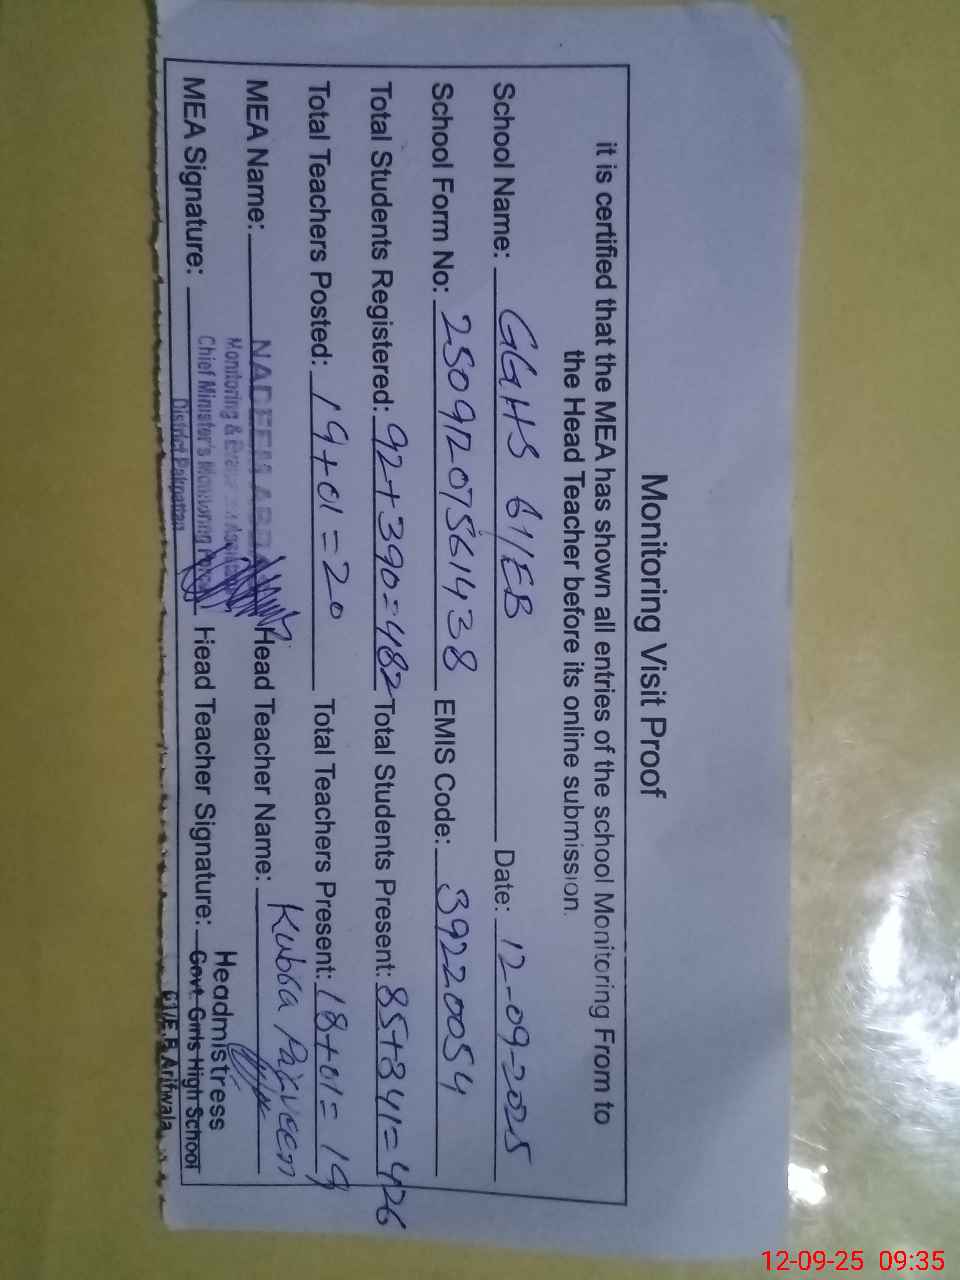 Monitoring Visit Proof
it is certified that the MEA has shown all entries of the school Monitoring From to
the Head Teacher before its online submission.
School Name: GGHS 61/EB Date: 12-09-2025
School Form No: 25091207561438 EMIS Code: 39220054
Total Students Registered: 92+390=482 Total Students Present: 85+341=426
Total Teachers Posted: 19+01=20 Total Teachers Present: 18+01=19
MEA Name: NADEEM Head Teacher Name: Kubra Parveen
Monitoring &
MEA Signature: Chief Minister's Monitoring Force Head Teacher Signature: Headmistress
District Pakpattan Govt. Girls High School
61/E.B Arifwala
12-09-25 09:35